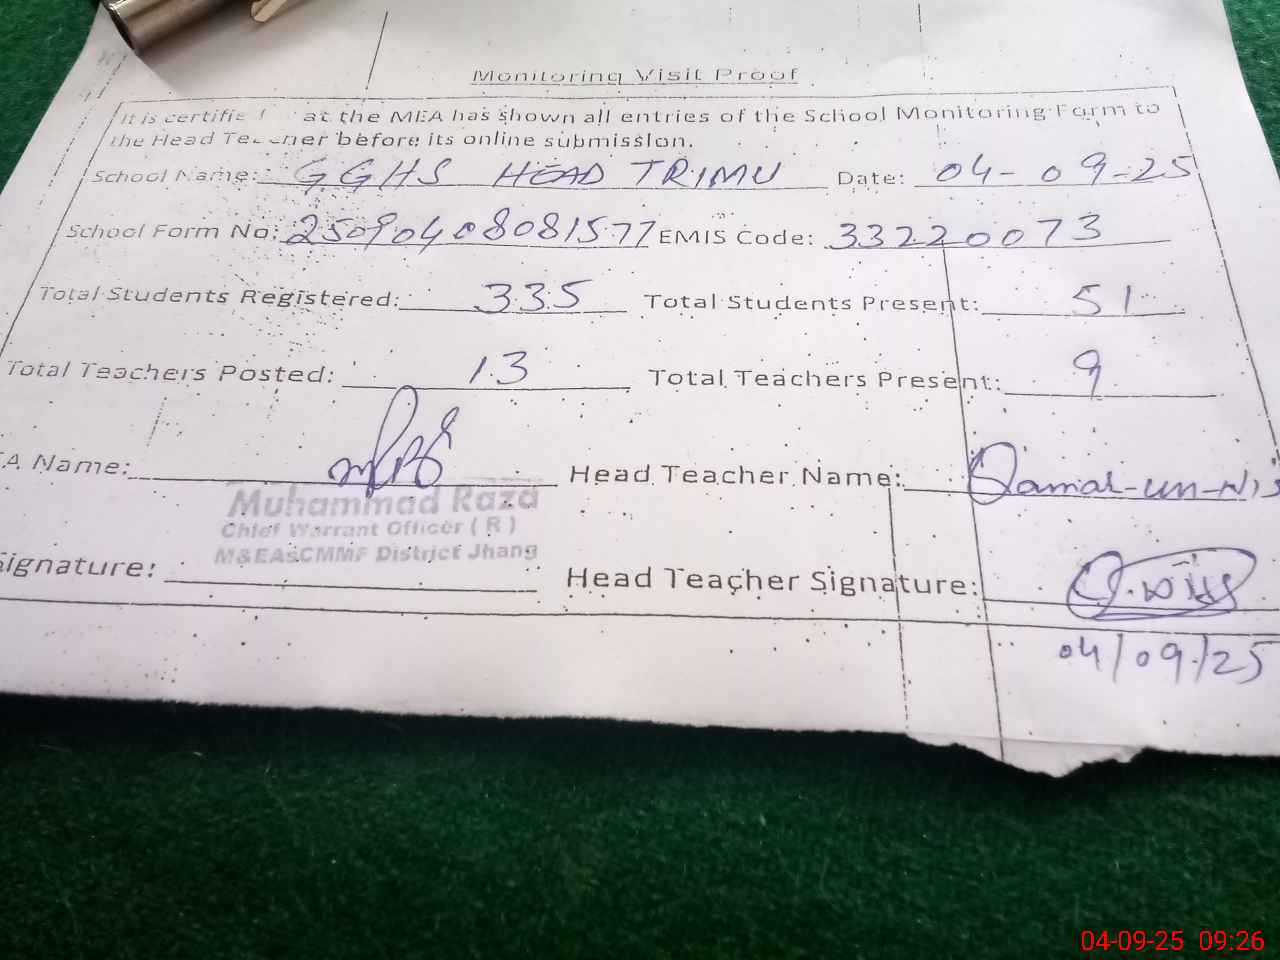 Monitoring Visit Proof
It is certifie at the MEA has shown all entries of the School Monitoring Form to
the Head Teacher before its online submission.
School Name: GGHS HEAD TRIMU Date: 04-09-25
School Form No: 25090408081577 EMIS Code: 33220073
Total Students Registered: 335 Total Students Present: 51
Total Teachers Posted: 13 Total Teachers Present: 9
A Name: Head Teacher Name: Qamal-un-Nis
Muhammad Raza
Chief Warrant Officer ( R )
M&EAsCMMF District Jhang
ignature: Head Teacher Signature:
04/09/25
04-09-25 09:26